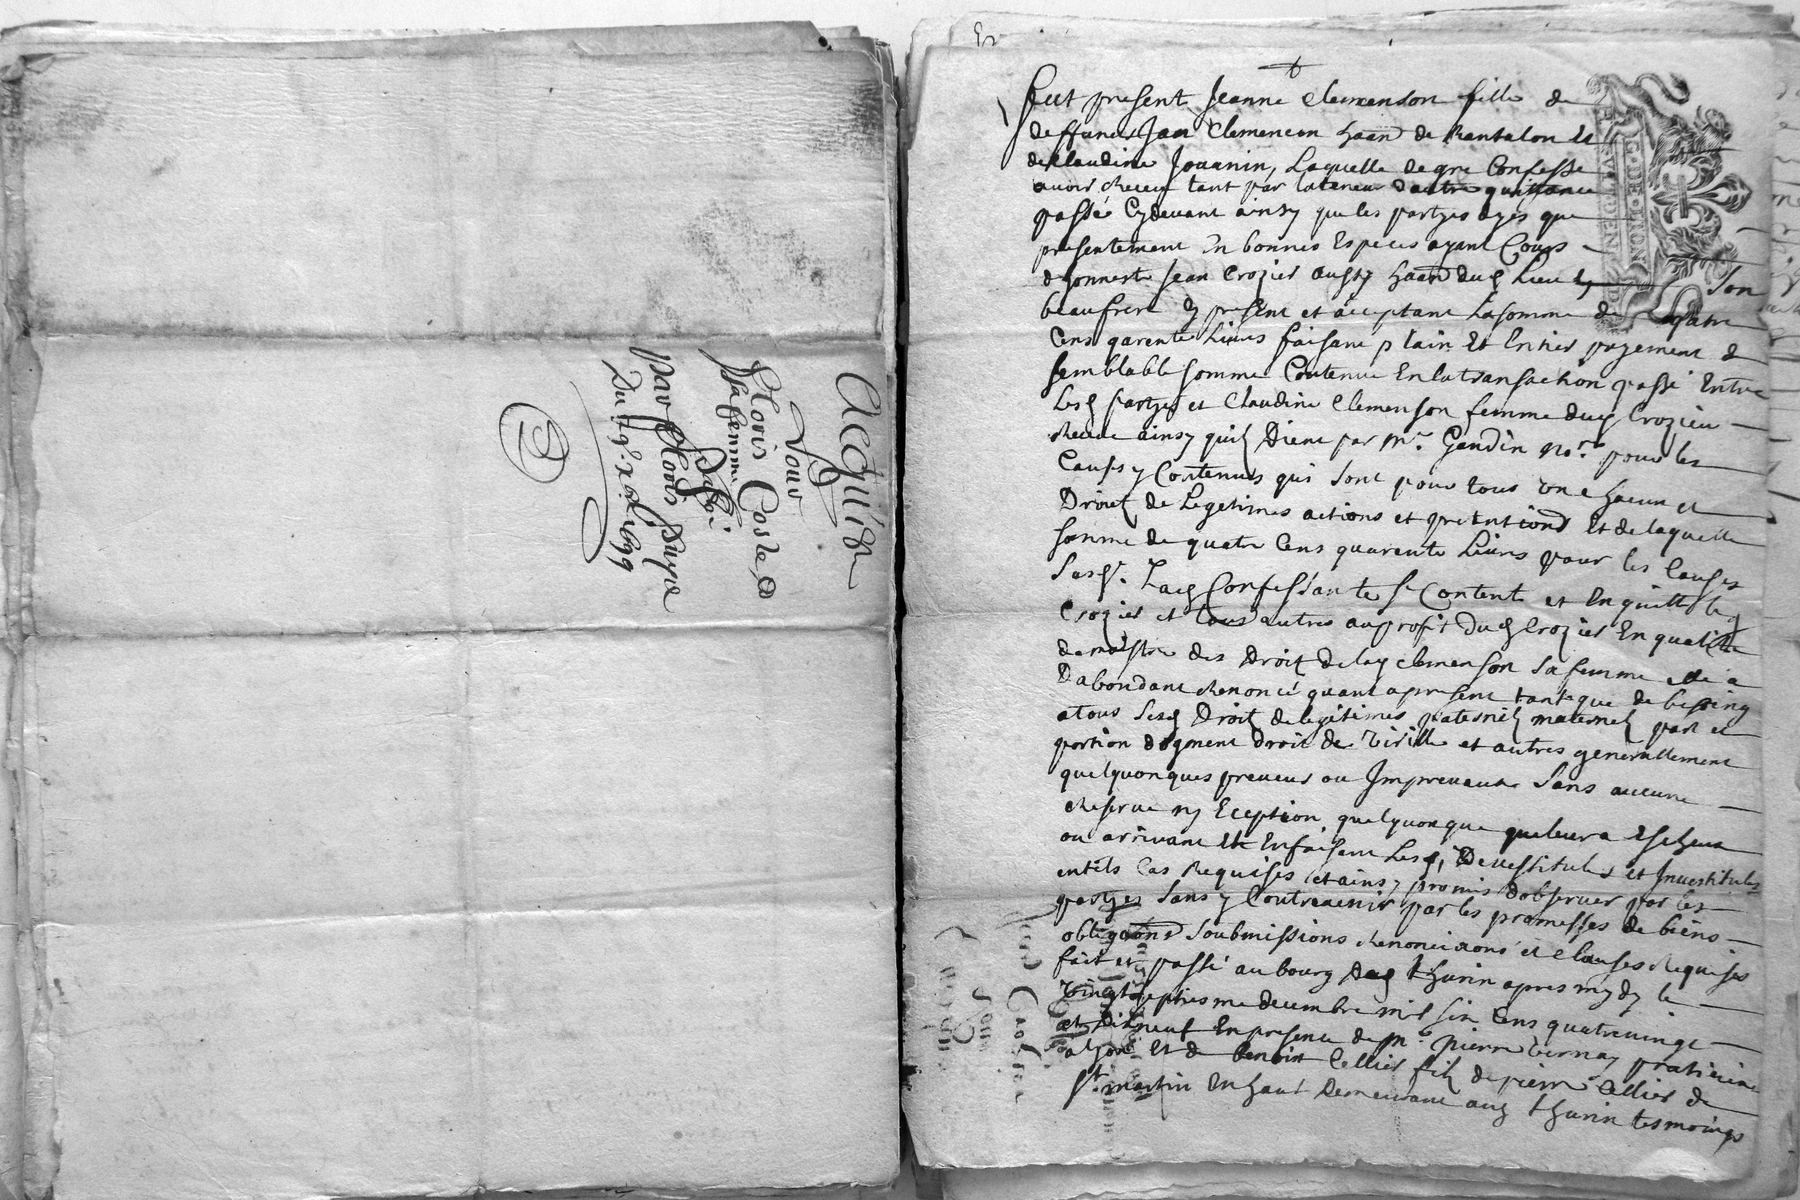 Acquis
Pour
Floris Coste &
sa femme
Passé
Par Floris Dupré
Du 19e xbre 1699
Fut present Jeanne Clemenson fille de
deffunct Jan Clemencon haan̄t de Rantalon et
de Claudine Jouanin, Laquelle de gre Confesse
avoir Receu tant par la teneur dautre quittance
passé Cydevant ainsy que les partyes
presentement En bonnes Especes ayant Cours
dhonneste Jean Crozier aussy haan̄t dud Lieu Son
beaufrere Cy present et acceptant La somme de quatre
Cens garente Livres faisant plain Et Entier payement de
semblable somme Contenue En la transaction passé Entre
Lesd partyes et Claudine Clemenson femme dud Crozieu
Receue ainsy quilz Dient par Mr. Gendin Nore. pour les
Causes y Contenues qui sont pour tous Un chacun et
Droictz de Legetimes actions et pretentions Et de laquelle
somme de quatre Cens quarente Livres pour les Causes
Susd. Lad Confessante se Contente et En quitte led
Crozier et tous autres au profit dud Crozier En qualité
de maistre des Droictz de lad Clemenson sa femme
Dabondant Renoncé quant apresent tant que de besoing
a tous sesd Droictz de legitimes paternelz maternelz part et
portion dogment droit de et autres generallement
quelquonques preveus ou Impreveus Sans aucune
Reserve ny Eception quelquonque Escheus
ou arrivant Et En faisant Lesd. Devestitules et Investitules
entels Cas Requises et ainsy promis dobserver par les
partyes Sans y Contrevenir par les promesses de biens
obligaōns Soubmissions Renonciaons et Clauses Requises
fait et passé au bourg dud thurin apres mydy le
Vingtseptiesme decembre mil six Cens quatrevingt
et Dixneuf En presence de Me. pierre Vernay praticien
a Lyon Et de benoist Cellier filz de pierre Cellier de
St. martin En haut demeurant aud thurin tesmoings
G. DE LYON